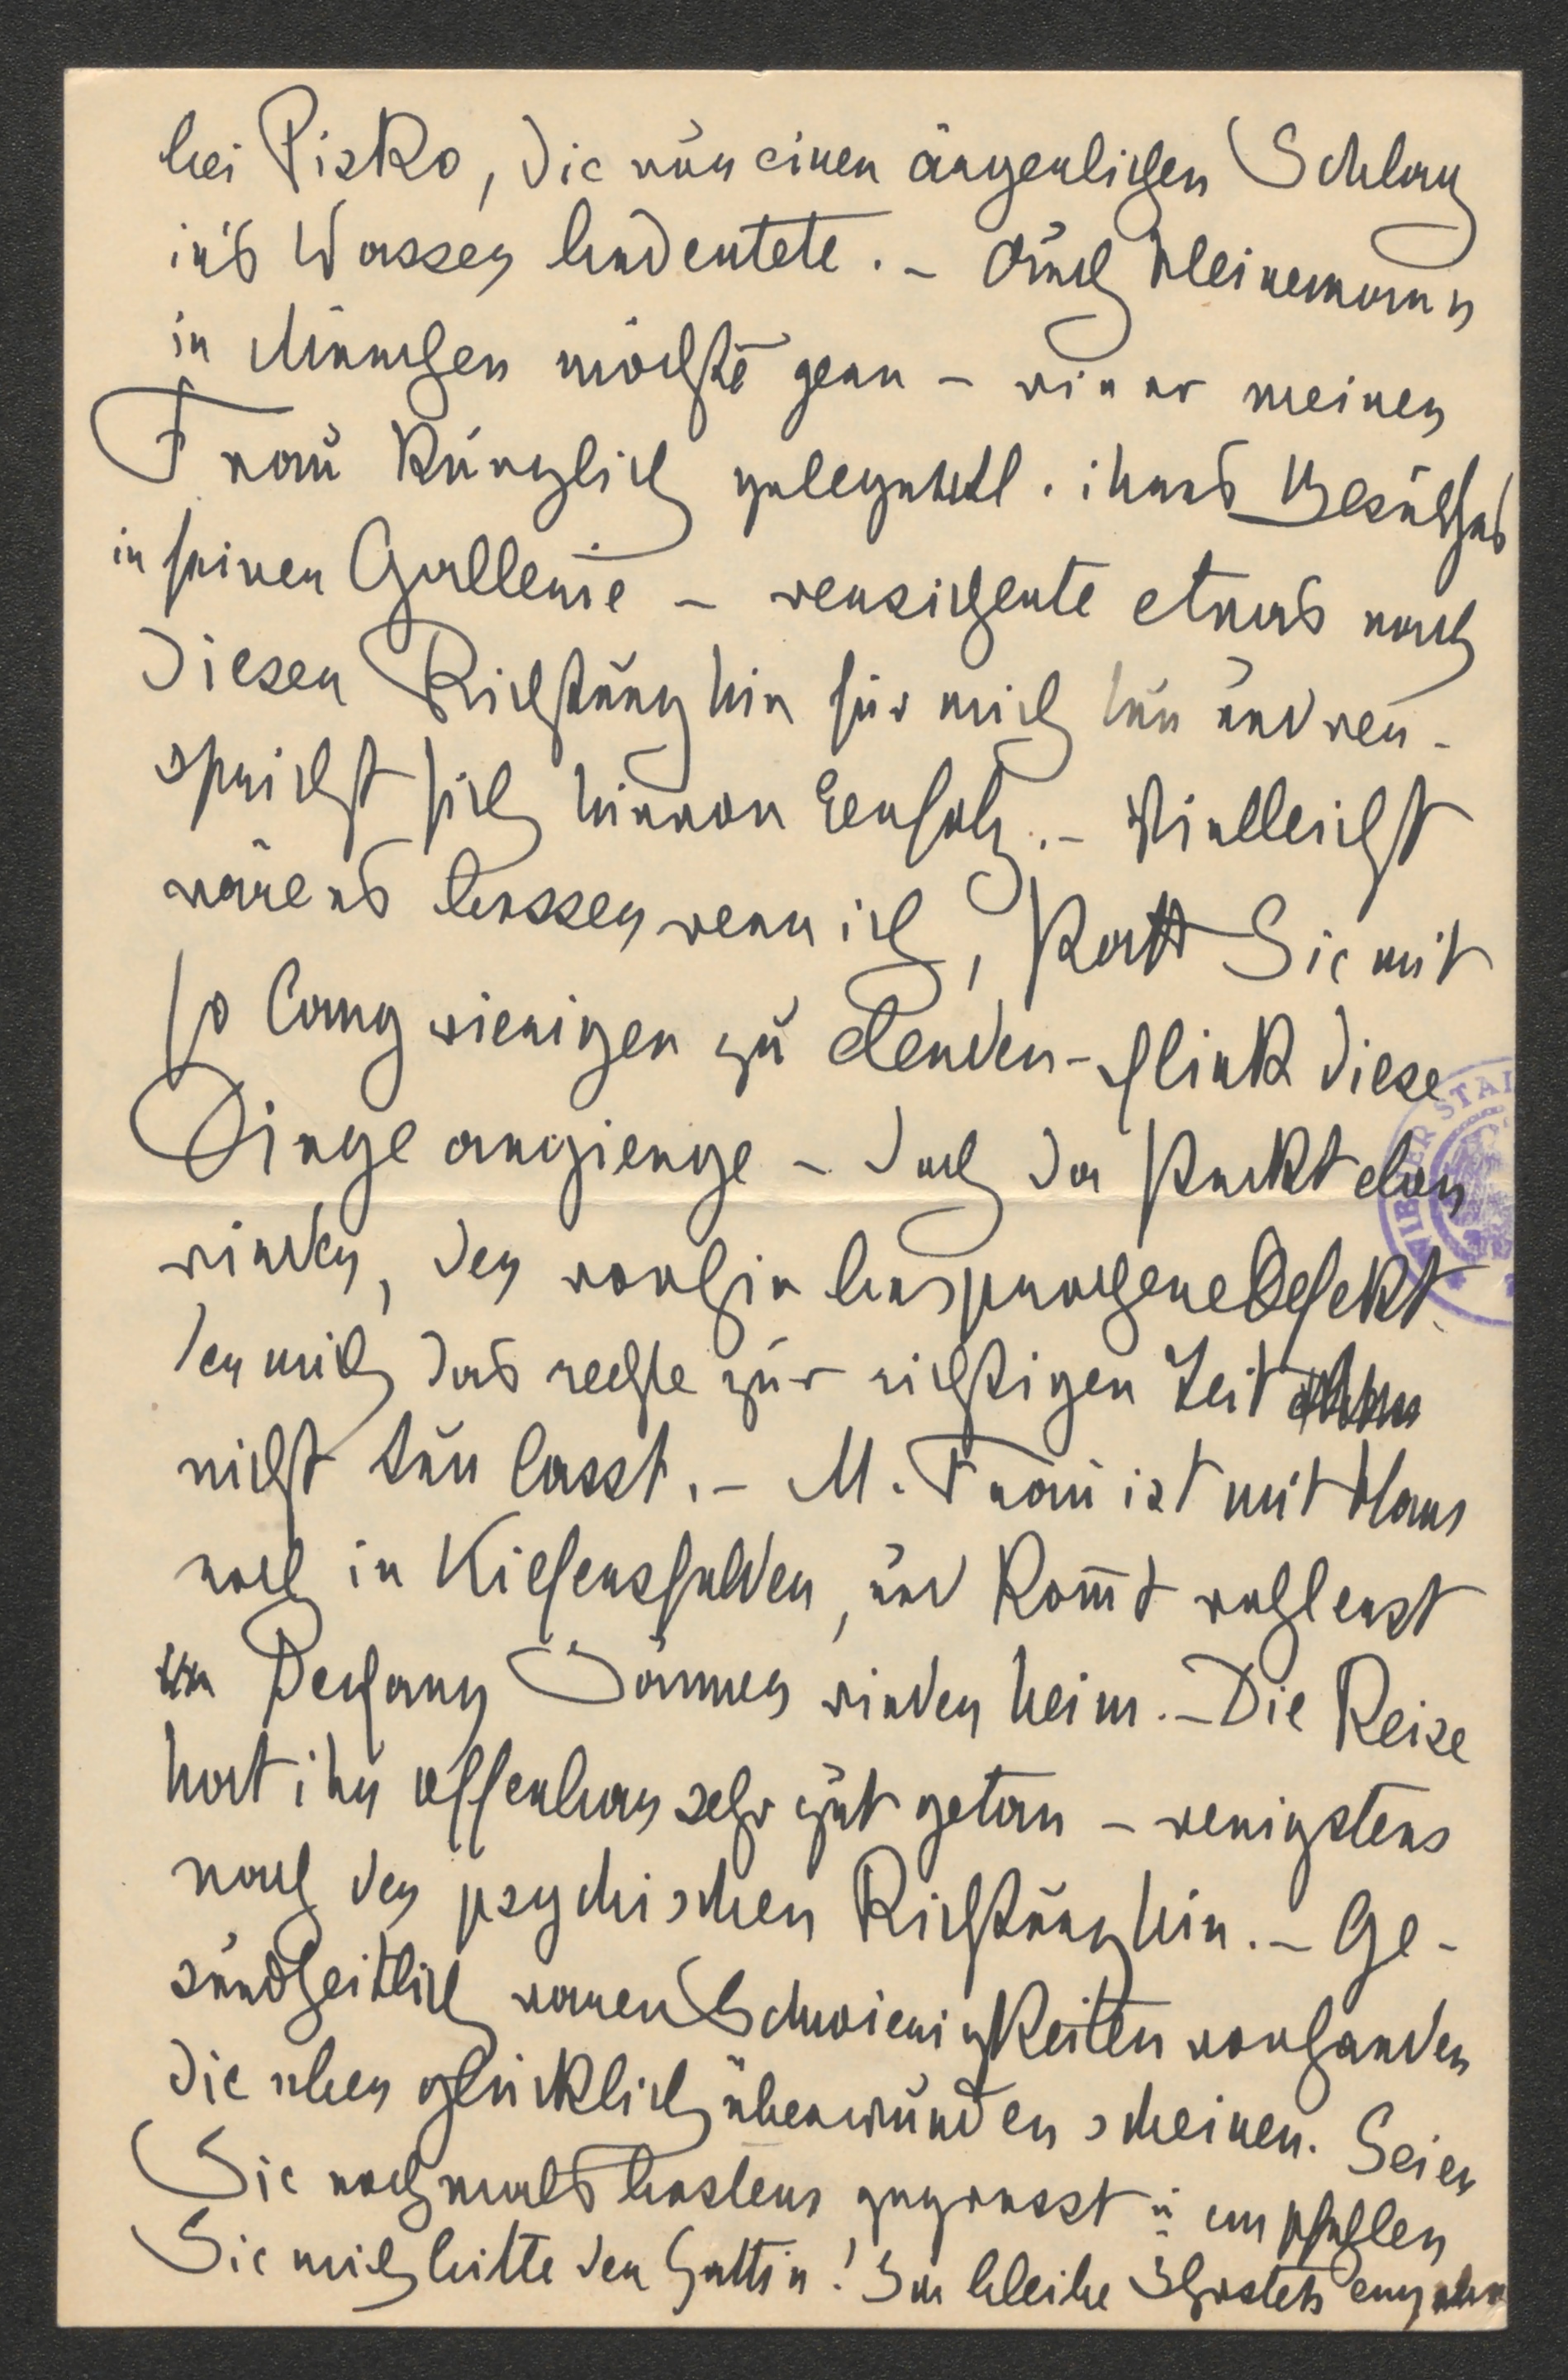 bei Pisko, die nun einen ärgerlichen Schlag
in's Wasser bedeutete. – Auch Heinemann
in München möchte gern – wie er meiner
Frau kürzlich gelegentl. ihres Besuches
in seiner Gallerie – versicherte etwas nach
dieser Richtung hin für mich tun und ver-
spricht sich hievon Erfolg. – Vielleicht
wäre es besser wenn ich, statt Sie mit
so langwierigen zu elenden – flink diese
Dinge angienge – doch da steckt eben
wieder, der vorhin besprochene Defekt
der mich das rechte zur richtigen Zeit
nicht tun lasst. – M. Frau ist mit Hans
noch in Kiefersfelden, und kommt wohl erst
Anfang Jänner wieder heim. – Die Reise
hat ihr offenbar sehr gut getan – wenigstens
nach der psychischen Richtung hin. – Ge-
sundheitlich waren Schwierigkeiten vorhanden
die aber glücklich überwunden scheinen. Seien
Sie nochmals bestens gegrüsst u empfehlen
Sie mich bitte der Gattin! Ich bleibe Ihr stets ergebener